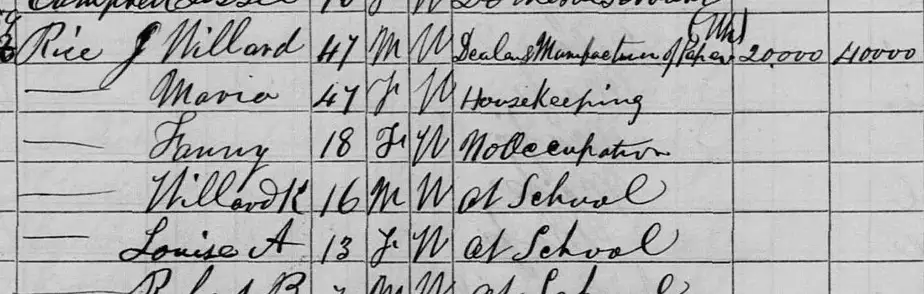 Rice J Willard 47 M W Dealer & Manufacturer of Paper (Wh) 20,000 40000
— Maria 47 F W Housekeeping
— Fanny 18 F W No Occupation
— Willard K 16 M W at School
— Louise A 13 F W at School